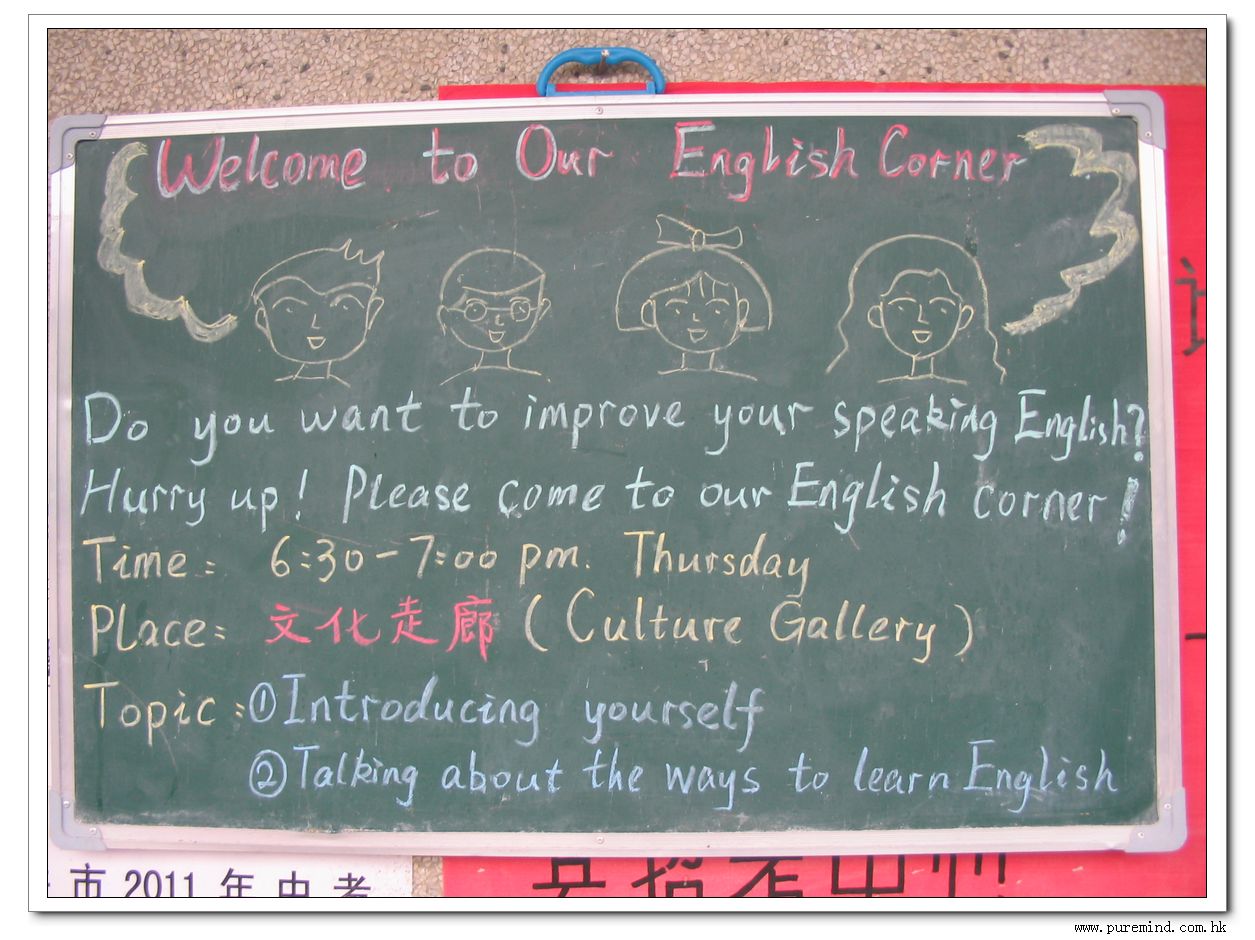 Welcome to Our English Corner
Do you want to improve your speaking English?
Hurry up! Please come to our English corner!
Time: 6:30-7:00 pm. Thursday
Place: 文化走廊 (Culture Gallery)
Topic: ①Introducing yourself
②Talking about the ways to learn English
市2011年中考
www.puremind.com.hk